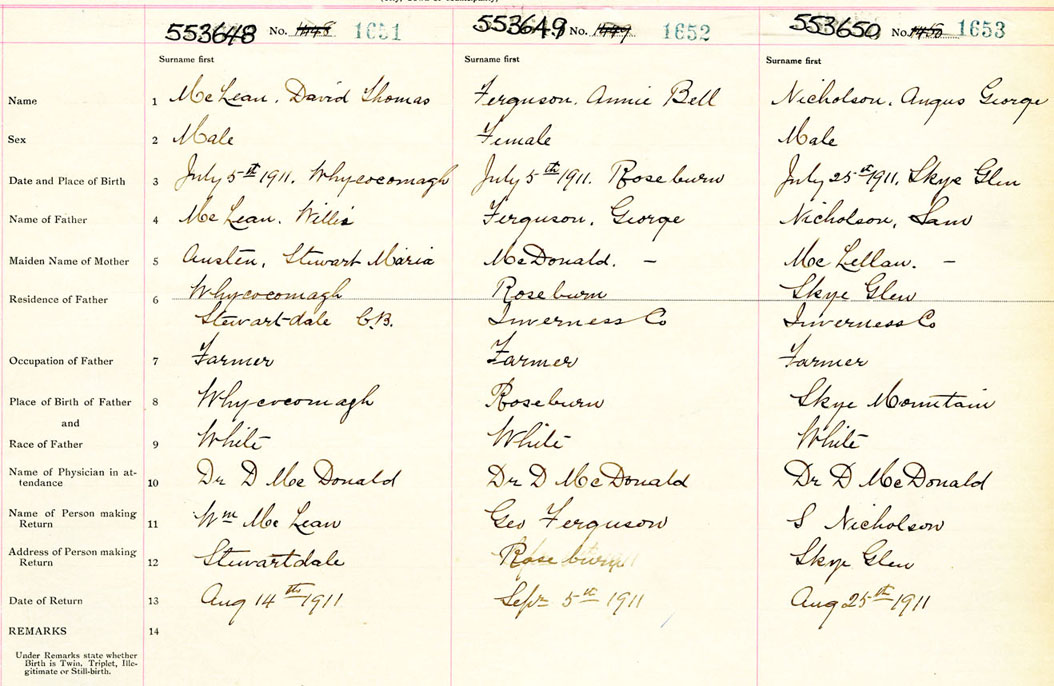 553648 No. 1448 1651 553649 No. 1449 1652 553650 No. 1450 1653
Surname first Surname first Surname first
Name 1 McLean, David Thomas Ferguson, Annie Bell Nicholson, Angus George
Sex 2 Male Female Male
Date and Place of Birth 3 July 5th 1911. Whycocomagh July 5th 1911. Roseburn July 25th 1911, Skye Glen
Name of Father 4 McLean. Willis Ferguson, George Nicholson, Sam
Maiden Name of Mother 5 Austen, Stewart Maria McDonald. – McLellan. –
Residence of Father 6 Whycocomagh Roseburn Skye Glen
Stewart-dale C.B. Inverness Co Inverness Co
Occupation of Father 7 Farmer Farmer Farmer
Place of Birth of Father 8 Whycocomagh Roseburn Skye Mountain
and
Race of Father 9 White White White
Name of Physician in at-
tendance 10 Dr D McDonald Dr D McDonald Dr D McDonald
Name of Person making
Return 11 Wm McLean Geo Ferguson S Nicholson
Address of Person making
Return 12 Stewartdale Roseburn Skye Glen
Date of Return 13 Aug 14th 1911 Sepr 5th 1911 Aug 25th 1911
REMARKS 14
Under Remarks state whether
Birth is Twin, Triplet, Ille-
gitimate or Still-birth.